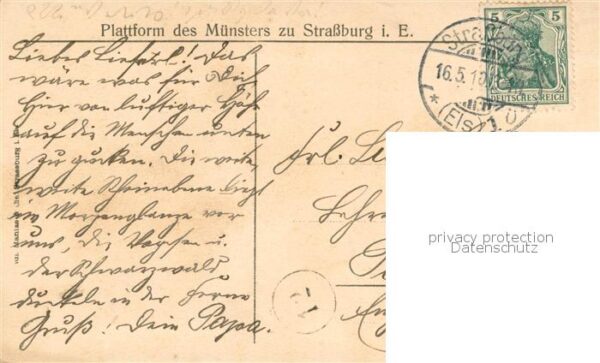 Plattform des Münsters zu Straßburg i. E.
Liebes Lieserl! Das
wäre was für Dich
hier von luftiger Höhe
auf die Menschen unten
zu gucken. Die weite,
weite Rheinebene liegt
im Morgenglanze vor
uns, die Vogesen u.
der Schwarzwald
dunkeln in der Ferne
Gruß! Dein Papa.
5 5
DEUTSCHES REICH
Straßburg
16.5.
(Els.)
Frl.
Lehre
12
privacy protection
Datenschutz